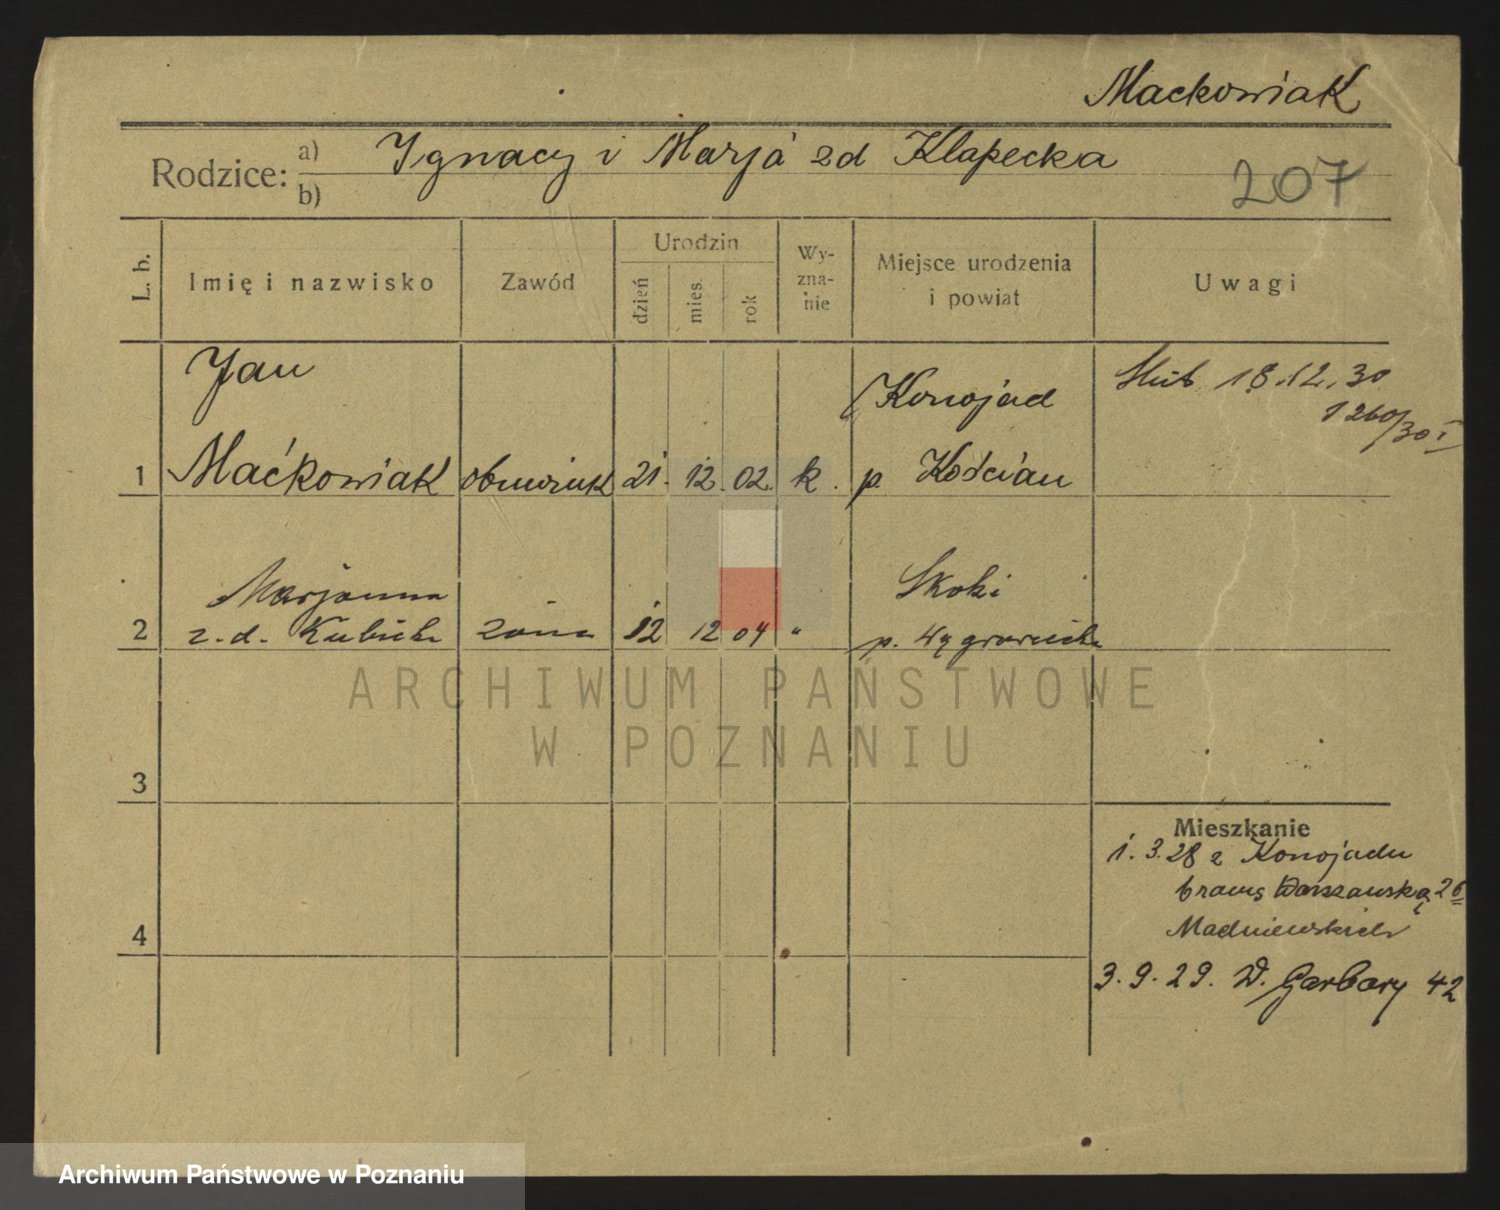 Maćkowiak
Rodzice: a) b)
Ignacy i Marja zd Klapecka
207
L. b.
Imię i nazwisko
Zawód
Urodzin
dzień
mies.
rok
Wy-
zna-
nie
Miejsce urodzenia
i powiat
Uwagi
Jan
Konojad
Ślub 18.12.30
1260/30 I
1 Maćkowiak 21. 12. 02. k. p. Kościan
Marjanna
Skoki
2 z. d. Kubicka żona 12 12 04 "
ARCHIWUM PAŃSTWOWE
W POZNANIU
3
Mieszkanie
1. 3. 28 z Konojadu
Warszawska 26
4
3. 9. 29. W. Garbary 42
Archiwum Państwowe w Poznaniu